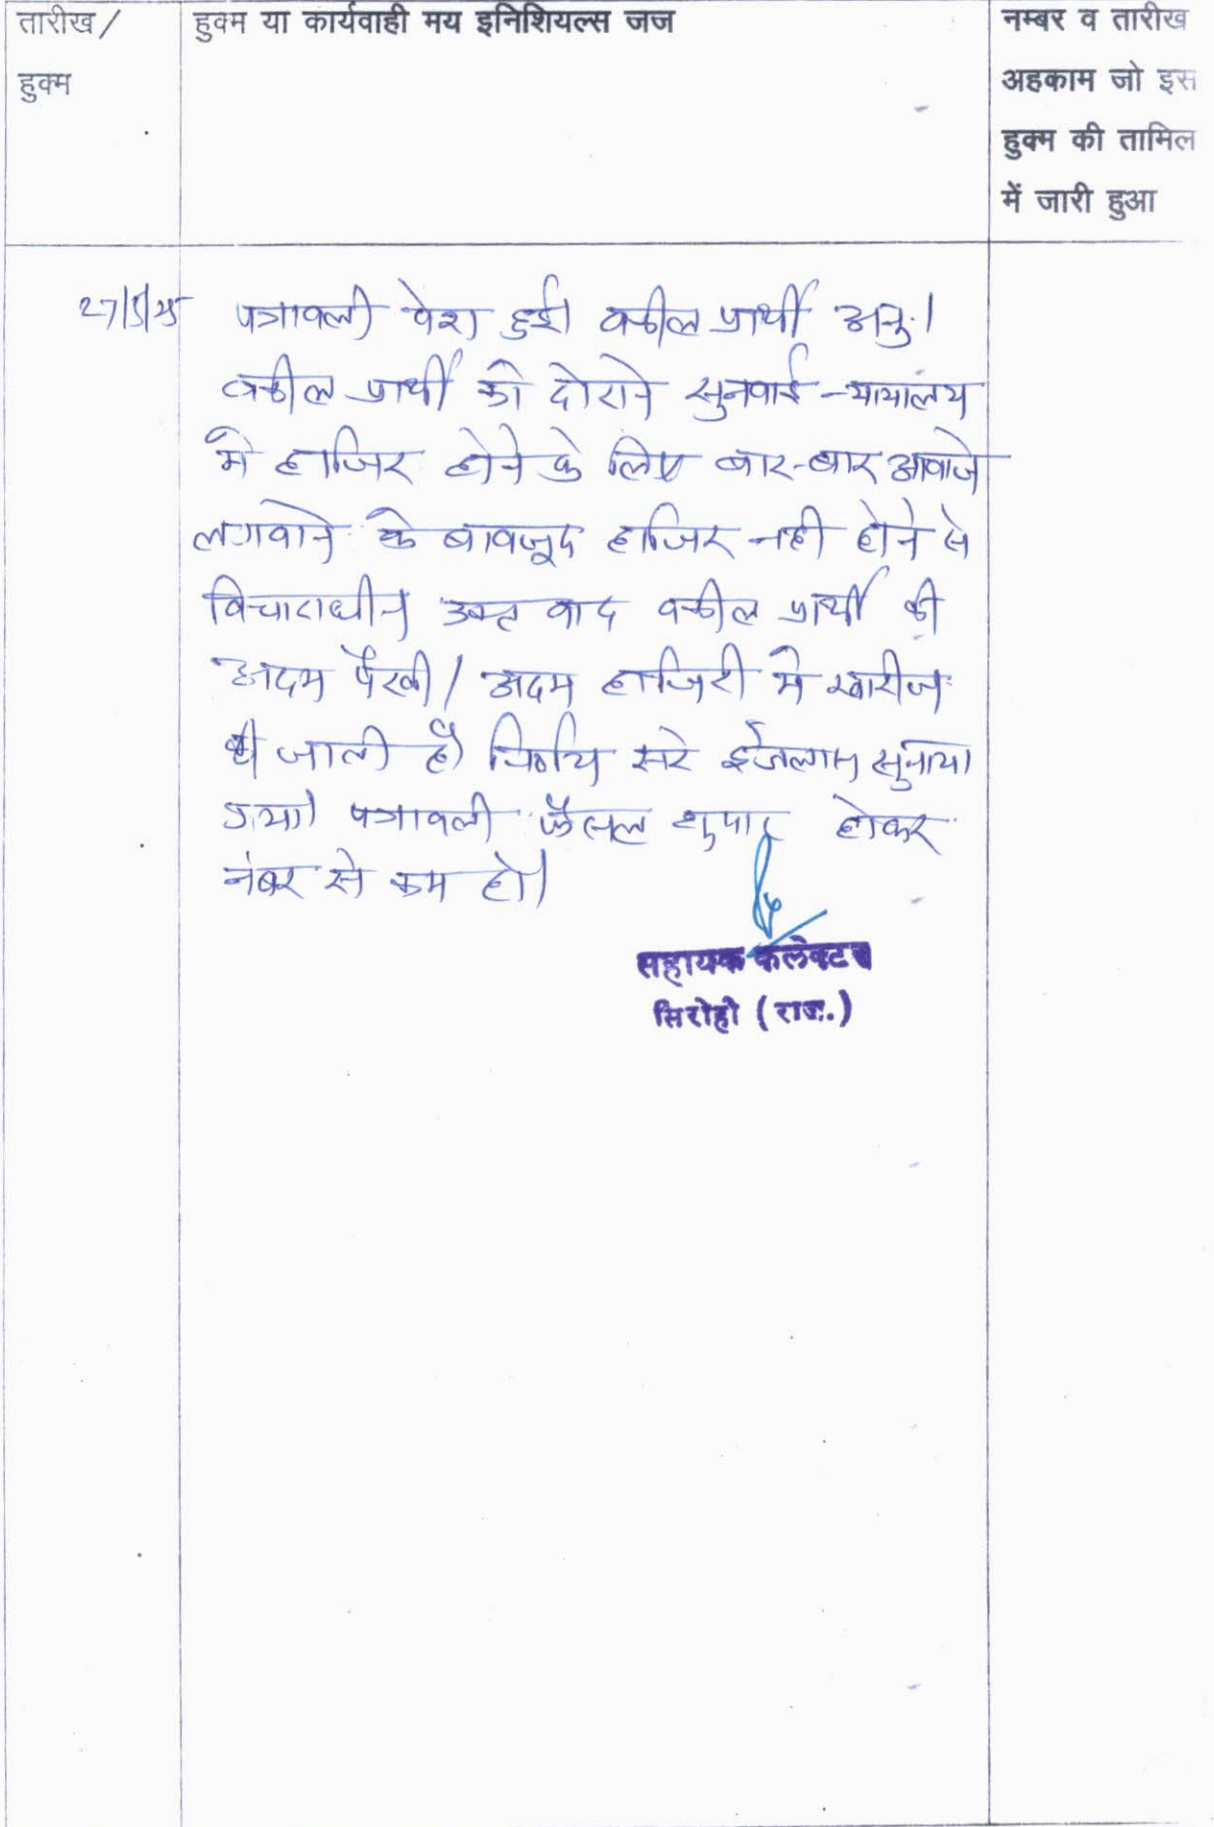 तारीख/
हुक्म
हुक्म या कार्यवाही मय इनिशियल्स जज
नम्बर व तारीख
अहकाम जो इस
हुक्म की तामिल
में जारी हुआ
27/5/25 पत्रावली पेश हुई। वकील प्रार्थी अनु.।
वकील प्रार्थी को दोराने सुनवाई न्यायालय
मे हाजिर होने के लिए बार-बार आवाजे
लगवाने के बावजूद हाजिर नही होने से
विचाराधीन उक्त वाद वकील प्रार्थी की
अदम पैरवी/अदम हाजिरी मे खारीज
की जाती है। निर्णय सरे ईजलास सुनाया
गया। पत्रावली फैसल शुमार होकर
नंबर से कम हो।
सहायक कलेक्टर
सिरोही (राज.)